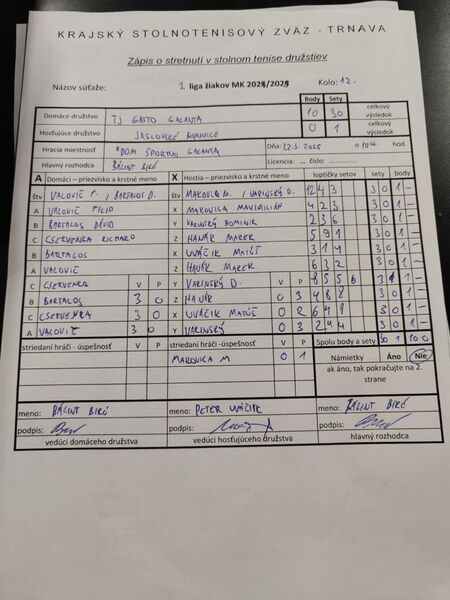 KRAJSKÝ STOLNOTENISOVÝ ZVÄZ - TRNAVA
Zápis o stretnutí v stolnom tenise družstiev
Názov súťaže: 1. liga žiakov MK 2024/2025 Kolo: 12.
Body Sety
Domáce družstvo TJ GASTO GALANTA 10 30 celkový výsledok
Hosťujúce družstvo JASLOVSKÉ BOHUNICE 0 1 celkový výsledok
Hracia miestnosť "DOM ŠPORTU" GALANTA Dňa: 22.3.2025 o 10 hod.
Hlavný rozhodca BÁLINT BIRÓ Licencia: ... číslo:
A Domáci - priezvisko a krstné meno X Hostia - priezvisko a krstné meno loptičky setov sety body
štv VALOVIČ F. / BARTALOS D. štv MAKOVICA M. / VARINSKÝ D. 12 4 3 3 0 1 -
A VALOVIČ FILIP X MAKOVICA MAXIMILIÁN 4 2 3 3 0 1 -
B BARTALOS DÁVID Y VARINSKÝ DOMINIK 2 3 6 3 0 1 -
C CSERVENKA RICHARD Z HANÁK MAREK 5 9 1 3 0 1 -
B BARTALOS X UVÁČIK MATÚŠ 3 1 4 3 0 1 -
A VALOVIČ Z HANÁK MAREK 6 3 2 3 0 1 -
C CSERVENKA V P Y VARINSKÝ D. V P 8 5 5 6 3 1 1 -
B BARTALOS 3 0 Z HANÁK 0 3 4 8 8 3 0 1 -
C CSERVENKA 3 0 X UVÁČIK MATÚŠ 0 2 6 4 8 3 0 1 -
A VALOVIČ 3 0 Y VARINSKÝ 0 3 2 4 4 3 0 1 -
striedaní hráči - úspešnosť V P striedaní hráči - úspešnosť V P Spolu body a sety 30 1 10 0
MAKOVICA M 0 1 Námietky Áno Nie
ak áno, tak pokračujte na 2. strane
meno: BÁLINT BIRÓ meno: PETER UVÁČIK meno: BÁLINT BIRÓ
podpis: podpis: podpis:
vedúci domáceho družstva vedúci hosťujúceho družstva hlavný rozhodca